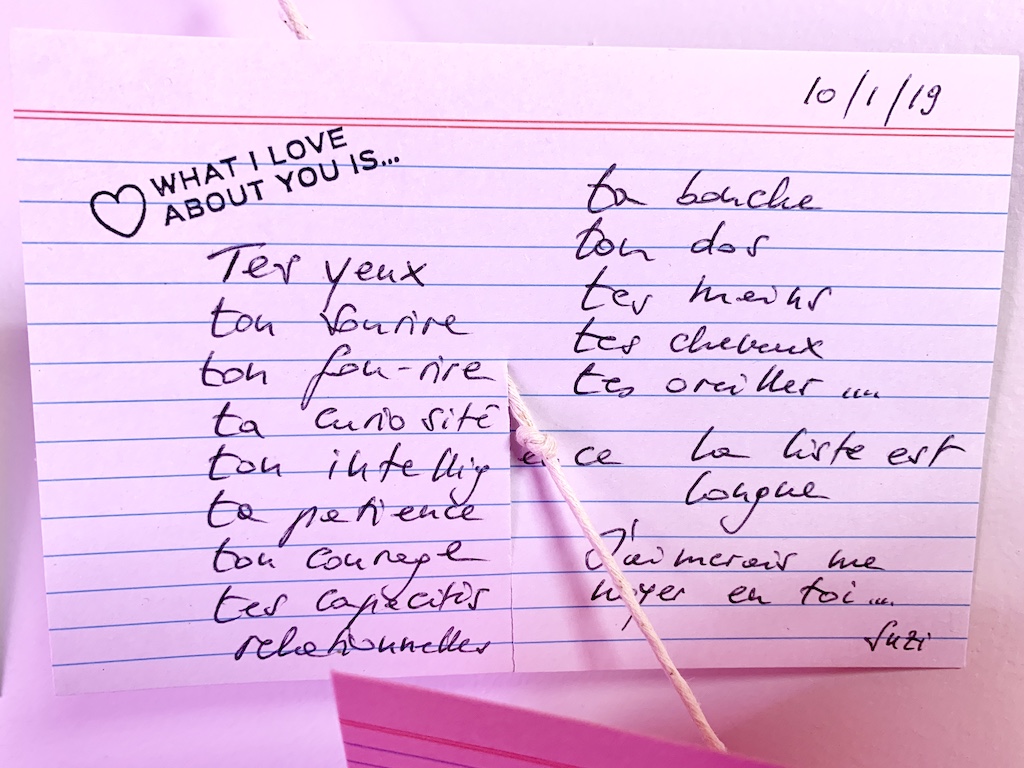 10/1/19
WHAT I LOVE
ABOUT YOU IS...
Tes yeux
ton sourire
ton fou-rire
ta curiosité
ton intelligence
ta patience
ton courage
tes capacités
relationnelles
ta bouche
ton dos
tes mains
tes cheveux
tes oreilles ....
La liste est
longue
J'aimerais me
noyer en toi....
Suzi